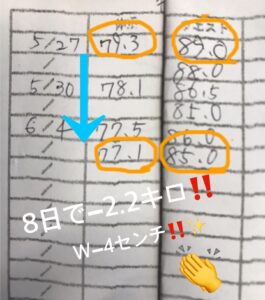 ウエスト
5/27 79.3 89.0
/ 88.0
5/30 78.1 86.5
/ 85.0
6/4 77.5 86.0
/ 77.1 85.0
8日で−2.2キロ‼️
W−4センチ‼️✨
👏